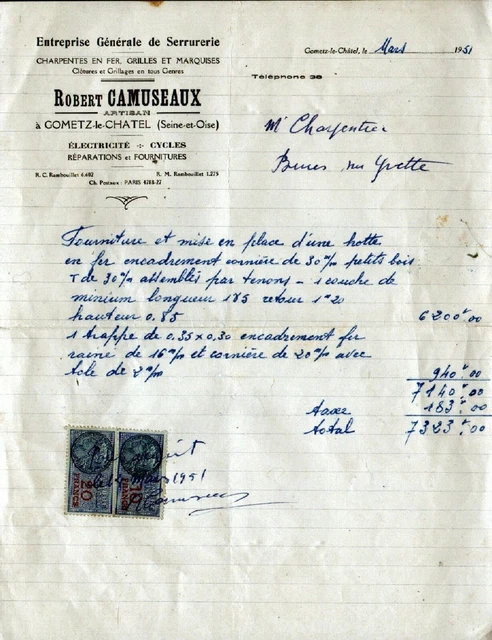 Entreprise Générale de Serrurerie
CHARPENTES EN FER, GRILLES ET MARQUISES
Clôtures et Grillages en tous Genres
ROBERT CAMUSEAUX
ARTISAN
à GOMETZ-le-CHATEL (Seine-et-Oise)
ÉLECTRICITÉ - CYCLES
RÉPARATIONS et FOURNITURES
R. C. Rambouillet 4.402 R. M. Rambouillet 1.275
Ch. Postaux : PARIS 4788-27
Gometz-le-Châtel, le Mars 1951
Téléphone 38
Mr Charpentier
Bures sur Yvette
Fourniture et mise en place d'une hotte
en fer encadrement cornière de 30 m/m petits bois
T de 30 m/m assemblés par tenons - 1 couche de
minium longueur 185 retour 1m20
hauteur 0.85 6200f.00
1 trappe de 0,35 x 0,30 encadrement fer
rainé de 16 m/m et cornière de 20 m/m avec
tole de 2 m/m 940f.00
7140f.00
taxe 183f.00
total 7323f.00
20 FRANCS
10 FRANCS
Mars 1951